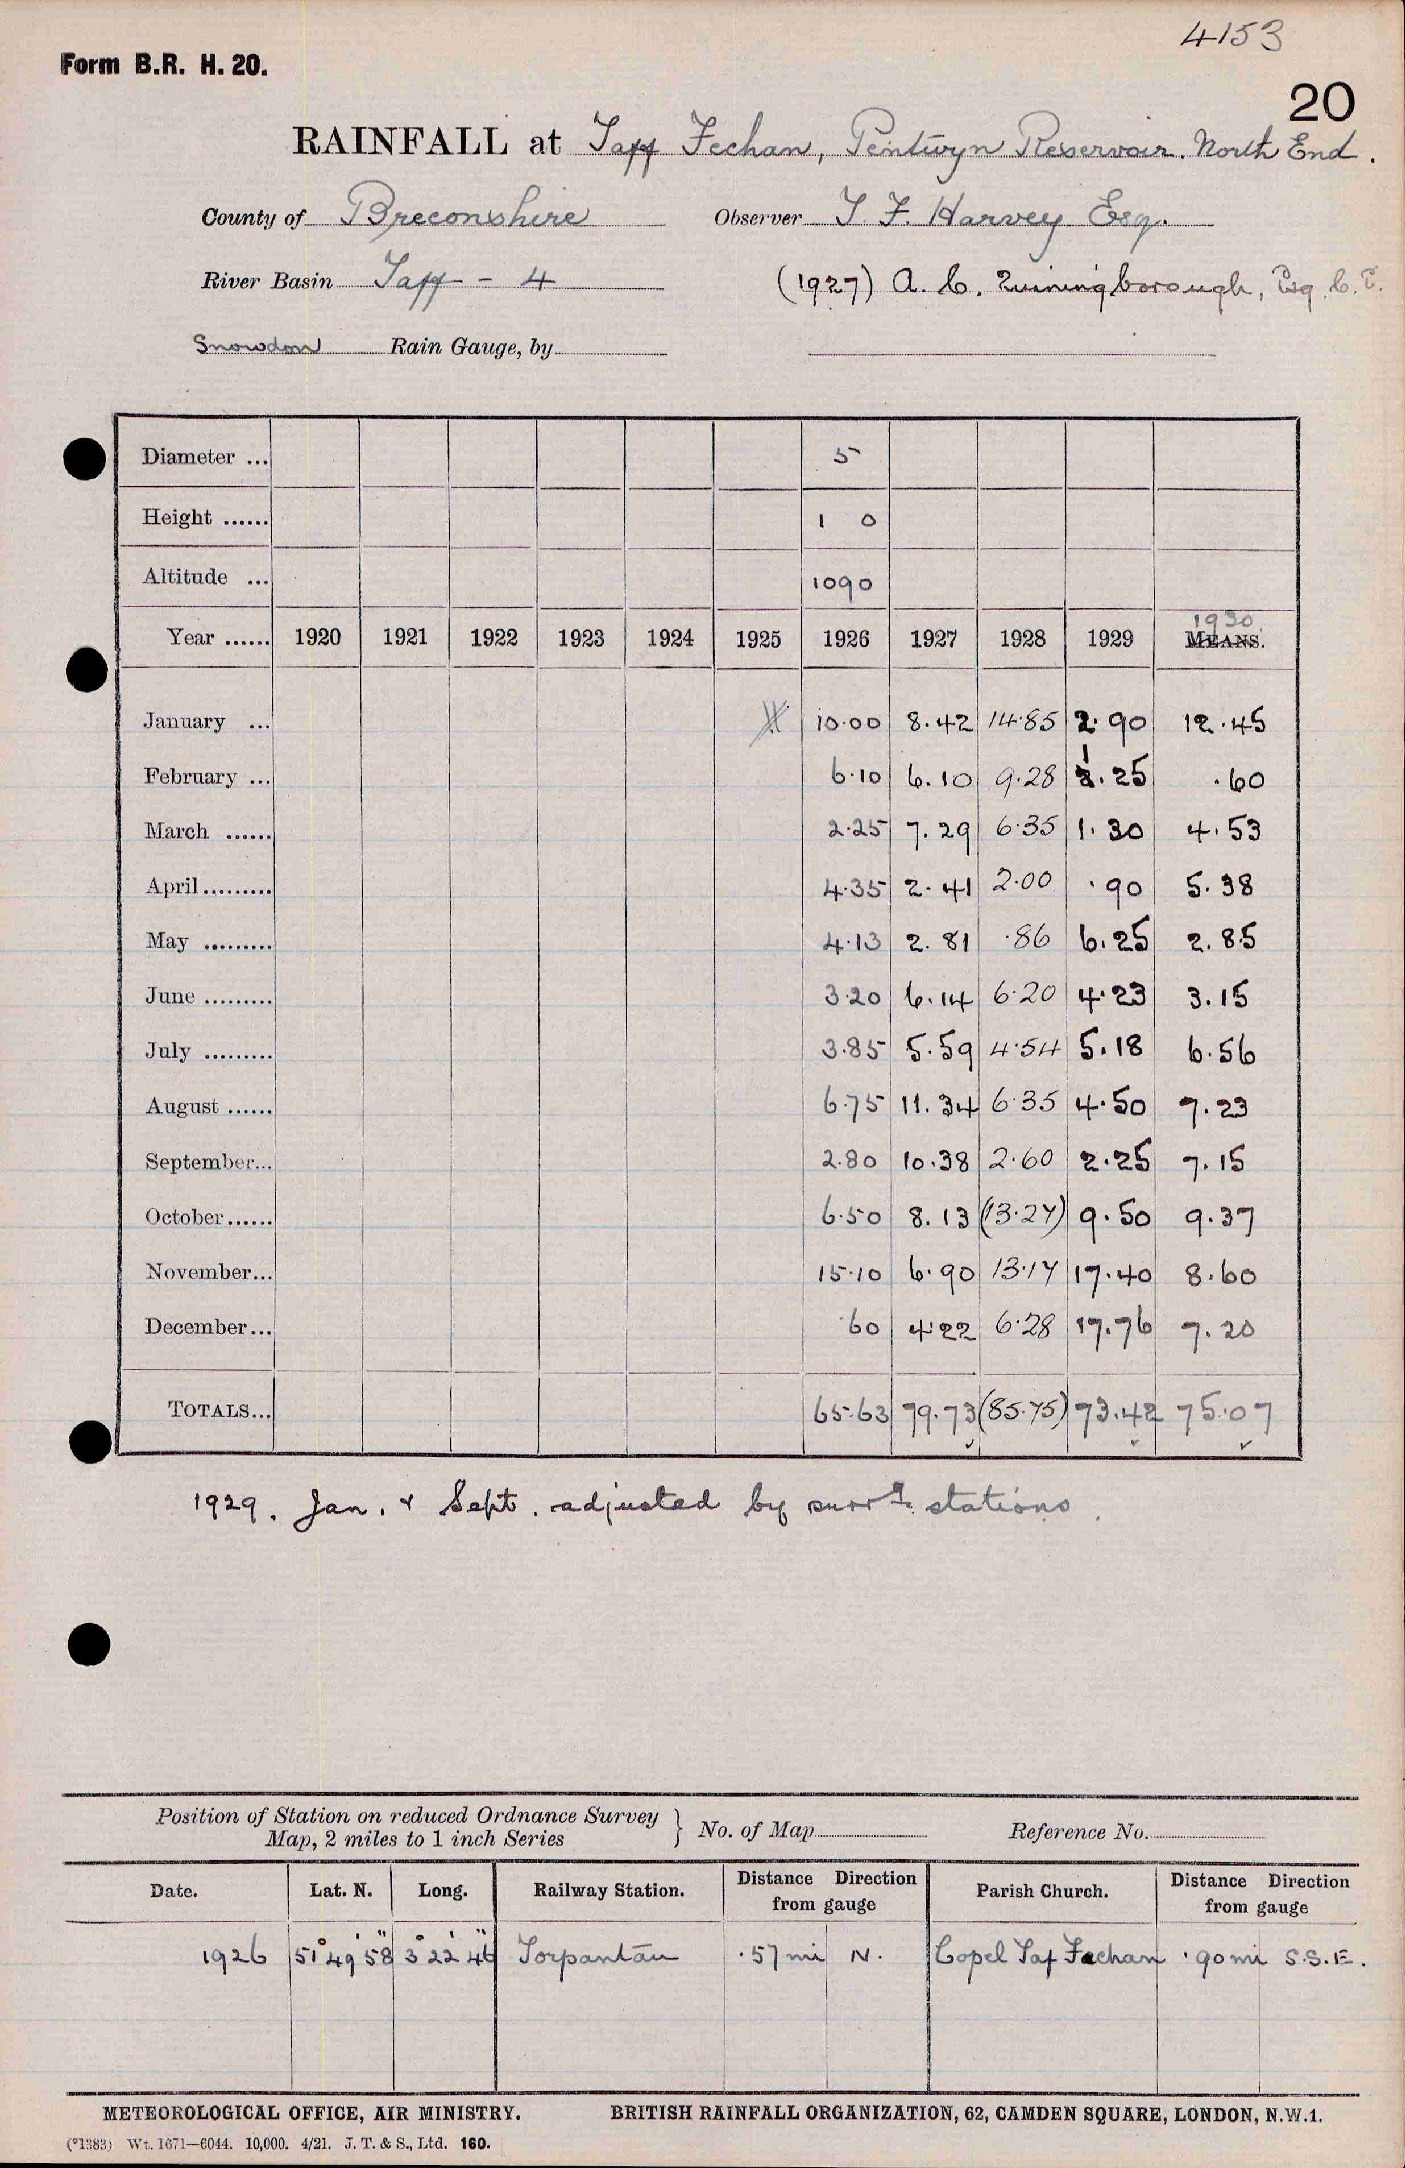 4153
Form B.R. H. 20.
20
RAINFALL at Taff Fechan, Pentwyn Reservoir. North End.
County of Breconshire Observer T. F. Harvey Esq.
River Basin Taff - 4 (1927) A. C. Esq. C.E.
Snowdon Rain Gauge, by
Diameter ... 5
Height ...... 1 0
Altitude ... 1090
1930.
Year ...... 1920 1921 1922 1923 1924 1925 1926 1927 1928 1929 MEANS.
January ... 10.00 8.42 14.85 2.90 12.45
February ... 6.10 6.10 9.28 1.25 .60
March ...... 2.25 7.29 6.35 1.30 4.53
April ......... 4.35 2.41 2.00 .90 5.38
May ......... 4.13 2.81 .86 6.25 2.85
June ......... 3.20 6.14 6.20 4.23 3.15
July ......... 3.85 5.59 4.54 5.18 6.56
August ...... 6.75 11.34 6.35 4.50 7.23
September... 2.80 10.38 2.60 2.25 7.15
October...... 6.50 8.13 (13.27) 9.50 9.37
November... 15.10 6.90 13.17 17.40 8.60
December... .60 4.22 6.28 17.76 7.20
TOTALS... 65.63 79.73 (85.75) 73.42 75.07
1929. Jan. & Sept. adjusted by surrg. stations.
Position of Station on reduced Ordnance Survey
Map, 2 miles to 1 inch Series } No. of Map Reference No.
Date. Lat. N. Long. Railway Station. Distance Direction from gauge Parish Church. Distance Direction from gauge
1926 51° 49' 58" 3° 22' 46" Torpantau .57 mi N. Capel Taf Fechan .90 mi S.S.E.
METEOROLOGICAL OFFICE, AIR MINISTRY. BRITISH RAINFALL ORGANIZATION, 62, CAMDEN SQUARE, LONDON, N.W.1.
(*1383) Wt. 1671—6044. 10,000. 4/21. J. T. & S., Ltd. 160.